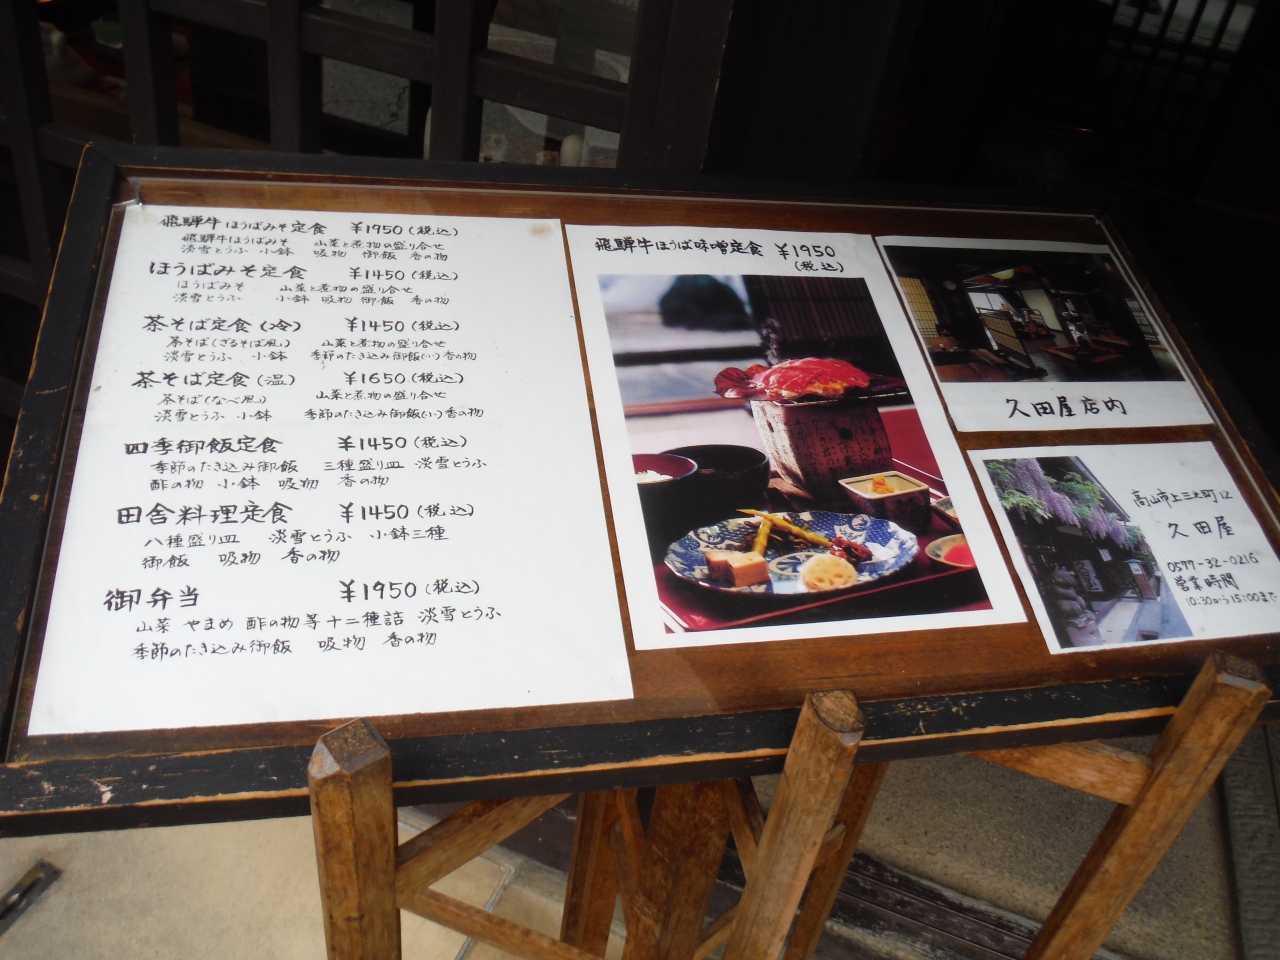 飛騨牛ほうばみそ定食 ¥1950(税込)
飛騨牛ほうばみそ 山菜と煮物の盛り合せ
淡雪とうふ 小鉢 吸物 御飯 香の物
ほうばみそ定食 ¥1450(税込)
ほうばみそ 山菜と煮物の盛り合せ
淡雪とうふ 小鉢 吸物 御飯 香の物
茶そば定食(冷) ¥1450(税込)
茶そば(ざるそば風) 山菜と煮物の盛り合せ
淡雪とうふ 小鉢 季節のたき込み御飯(小)香の物
茶そば定食(温) ¥1650(税込)
茶そば(なべ風) 山菜と煮物の盛り合せ
淡雪とうふ 小鉢 季節のたき込み御飯(小)香の物
四季御飯定食 ¥1450(税込)
季節のたき込み御飯 三種盛り皿 淡雪とうふ
酢の物 小鉢 吸物 香の物
田舎料理定食 ¥1450(税込)
八種盛り皿 淡雪とうふ 小鉢三種
御飯 吸物 香の物
御弁当 ¥1950(税込)
山菜 やまめ 酢の物等十二種詰 淡雪とうふ
季節のたき込み御飯 吸物 香の物
飛騨牛ほうば味噌定食 ¥1950
(税込)
久田屋店内
高山市上三之町12
久田屋
0577-32-0216
営業時間
10:30から15:00まで